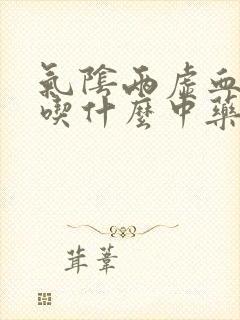 氣陰兩虛血
喫什麼中藥
茸葦